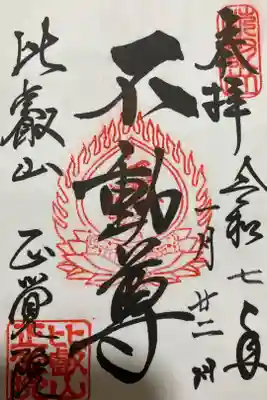 奉拝
令和七年
一月廿二日
不動尊
比叡山
正覚院